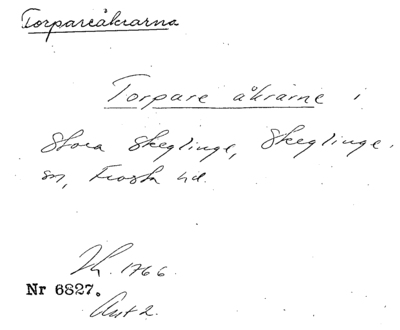 Torpareåkrarna
Torpare åkrarne i
Stora Skeglinge, Skeglinge
sn, Frosta hd.
1766.
Nr 6827.
Akt 2.